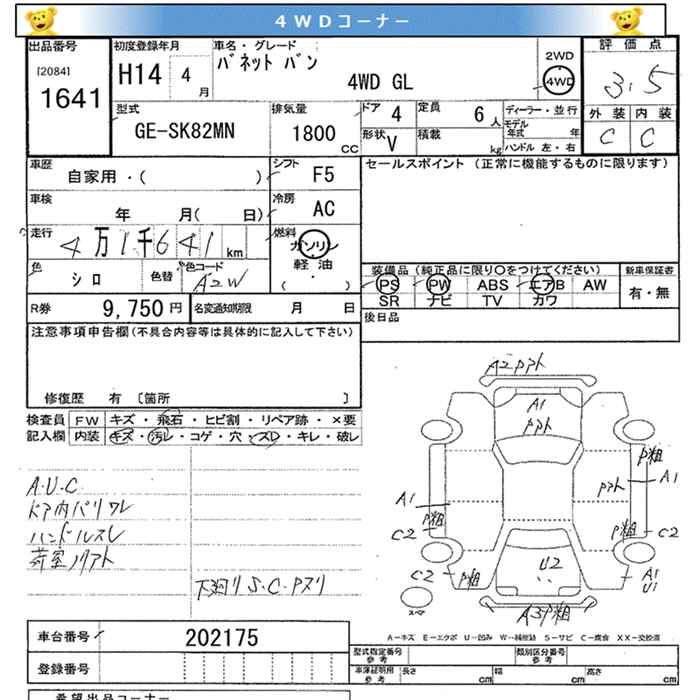 4WDコーナー
出品番号 初度登録年月 車名・グレード 2WD 評価点
[2084] H14 4月 バネット バン 4WD
1641 4WD GL 3.5
型式 排気量 ドア 4 定員 6人 ディーラー・並行 外装 内装
GE-SK82MN 1800cc 形状 V 積載 kg モデル年式 年 C C
ハンドル 左・右
車歴 自家用・( ) シフト F5 セールスポイント (正常に機能するものに限ります)
車検 年 月( 日) 冷房 AC
走行 4万1千641km 燃料 ガソリン
軽油
( ・ )
色 シロ 色替 色コード A2W 装備品(純正品に限り○をつけてください) 新車保証書
PS PW ABS エアB AW 有・無
R券 9,750円 名変通知期限 月 日 SR ナビ TV カワ
注意事項申告欄(不具合内容等は具体的に記入して下さい) 後日品
修復歴 有 [箇所 ]
検査員 FW キズ・飛石・ヒビ割・リペア跡・×要
記入欄 内装 キズ・汚レ・コゲ・穴・スレ・キレ・破レ
A2 アト
A1
P粗
A1
A1
P粗
P粗
C2
C2
C2
P粗
U2
A1
U1
スペア
A3P粗
A・U・C
ドア内バリワレ
ハンドルスレ
荷室ノリアト
下廻りS・C・Pヌリ
車台番号 202175
A-キズ E-エクボ U-凹み W-補修跡 S-サビ C-腐食 XX-交換済
登録番号
型式指定番号 参考 類別区分番号 参考
車庫証明用 参考 長さ cm 幅 cm 高さ cm
希望出品コーナー